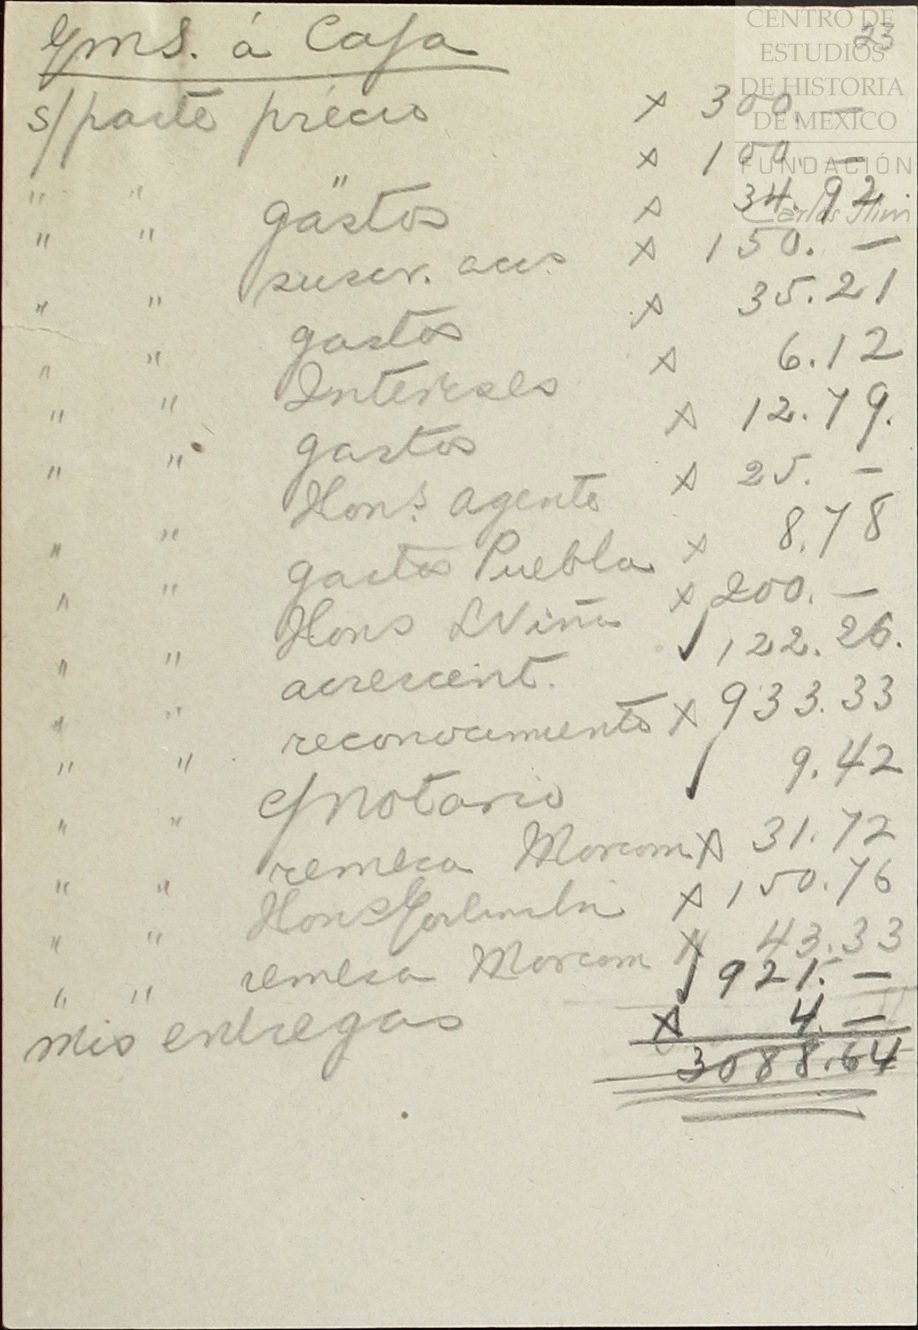 CENTRO DE
ESTUDIOS
DE HISTORIA
DE MEXICO
FUNDACIÓN
Carlos Slim
23
GmS. á Caja
s/parte précio × 300.—
" " " × 100.—
" " gastos × 34.92
" " suscr. accs × 150.—
" " gastos × 35.21
" " Intereses × 6.12
" " gastos × 12.79.
" " Hons. agente × 25.—
" " gastos Puebla × 8.78
" " Hons × 200.—
" " acrescent. √ 122.26.
" " reconocimiento × 933.33
" " Notario √ 9.42
" " remesa Morcom × 31.72
" " Hons × 150.76
" " remesa Morcom × 43.33
mis entregas √ 921.—
× 4.—
3088.64